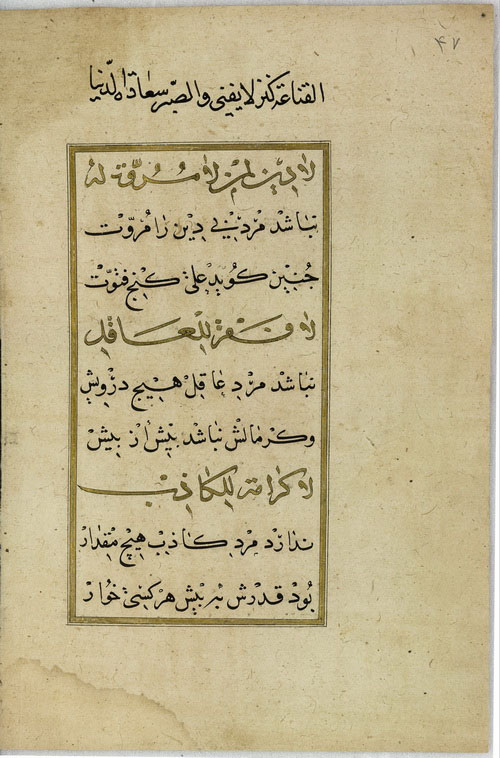 ۴۷
القناعة كنز لا يفنى والصبر سعادة الدنيا
لا دين لمن لا مروّة له
نباشد مرد بی دین را مروّت
چنین گوید علی گنج فتوّت
لا فقر للعاقل
نباشد مرد عاقل هیچ درویش
وگر مالش نباشد بیش از بیش
لا كرامة للكاذب
ندارد مرد کاذب هیچ مقدار
بود قدرش بر بیش هر کسی خوار